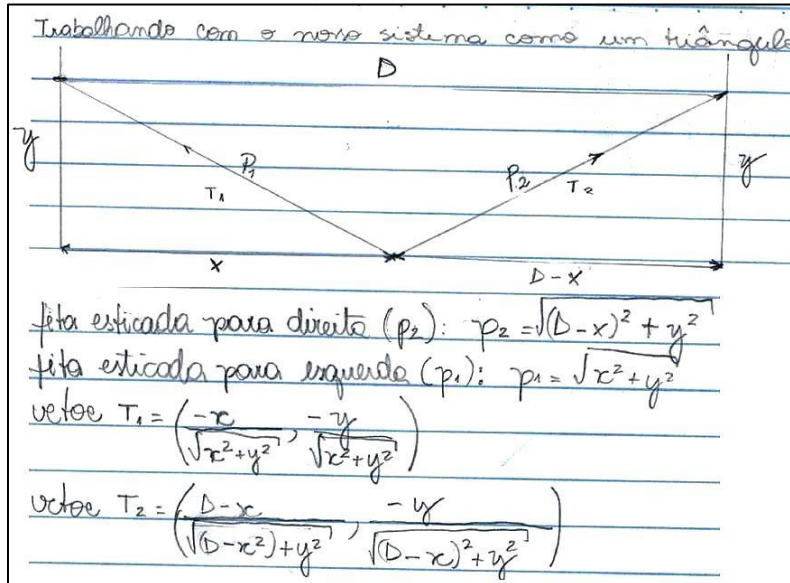 Trabalhando com o novo sistema como um triângulo
D
y
P₁
T₁
P₂
T₂
y
x
D - x
fita esticada para direita (p₂): p₂ = √((D-x)² + y²)
fita esticada para esquerda (p₁): p₁ = √(x² + y²)
vetor T₁ = (-x/√(x²+y²), -y/√(x²+y²))
vetor T₂ = (D-x/√((D-x²)+y²), -y/√((D-x)²+y²))